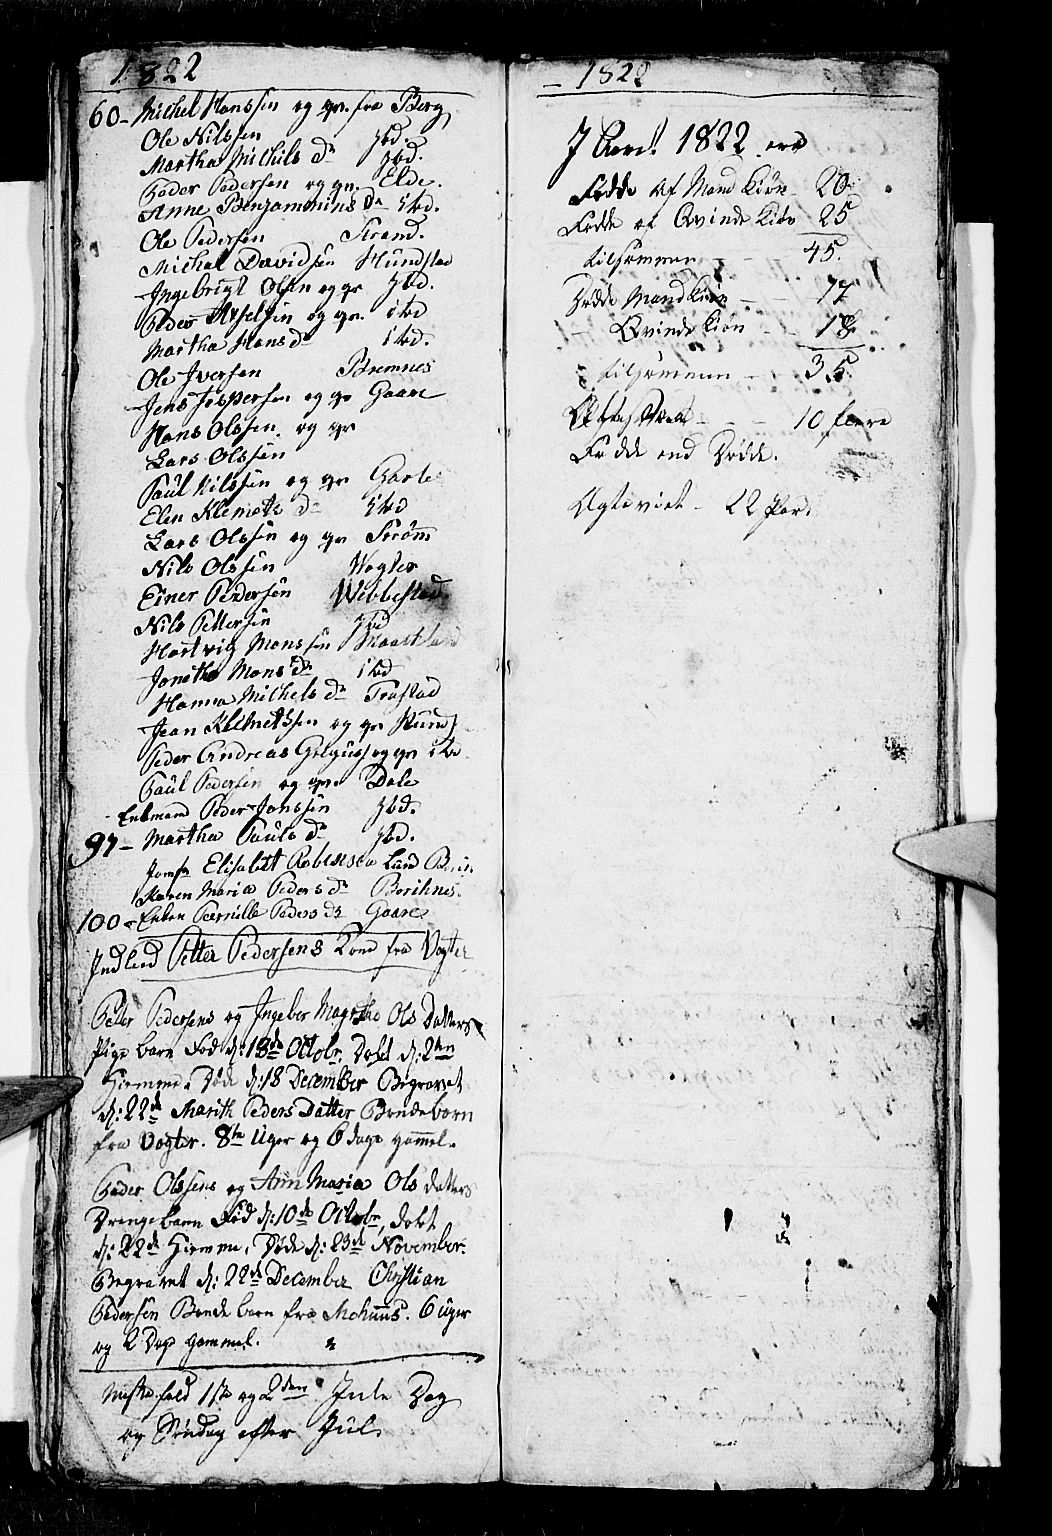 1822
60 - Michel Hanssen og qv. fra Berg
Ole Nilssen ibd.
Martha Michels dr ibd.
Peder Pedersen og qv. Elde.
Anne Benjaminins dr ibd.
Ole Pedersen Strand.
Michal Davidsen Hundstad
Ingebrigt Olsen og qv ibd.
Peder Axelsen og qv. ibd
Martha Hans dr ibd.
Ole Iversen Bremnes
Jens Jespersen og qv Gaare
Hans Olssen og qv
Lars Olssen
Paul Nilssen og qv Garte
Elen Klemets dr ibd
Lars Olssen og qv Strøm
Nils Olssen Vogter
Einer Pedersen Webbestad
Nils Pettersen ibd
Hartvig Monssen
Jonetha Mons dr ibd
Hanna Michels dr Trastad
Jean Klemetssen og qv Hunds
Peder Andreas Gregus og qv ibd
Paul Pedersen og qv. Dale
Enkemand Peder Jonssen ibd.
97 - Martha Pauls dr ibd.
Jomfr Elisabet Rebecca Lund
Karen Maria Peders dr Borihnes.
100 - Enken Pernille Peders dr Gaare
Indled Petter Pedersens Kone fra Vogter
Peder Pedersens og Ingeber Magrethe Ols Datters
Pige barn Fød d: 18de Octobr. Døbt d: 2den
Hiemme. Døde d: 18 December Begravet
d: 22de Marith Peders Datter Bondebarn
fra Vogter. 8te Uger og 6 dage gammel.
Peder Olssens og Ann Maria Ols datters
Drengebarn Fød d: 10de Octobr, døbt
d: 22de Hiemme, Døde d: 23de November.
Begravet d: 22de December Christian
Pedersen Bonde barn fra Mohuus. 6 uger
og 2 Dage gammel.
Messefald 1ste og 2den Jule Dag
og Søndag efter Jul
- 1822
I Aaret 1822 ere
Fødde af Mandkiøn 20
Fødde af Qvinde Kiøn 25
tilsammen - - 45.
Dødde Mandkiøn - - 17
Qvinde kiøn - - 18
tilsammen - 35.
- - - 10 flere
Fødde end Dødde.
Ægteviet - 22 Par.